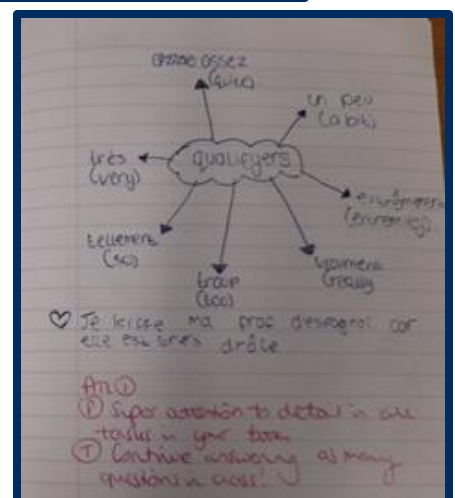 assez
(quite)
un peu
(a bit)
très
(very)
qualifyers
extrêmement
(extremely)
tellement
(so)
vraiment
(really
troup
(too)
Je kiffe ma prof d'espagnol car
elle est très drôle
① Super attention to detail in
tasks in your book
Ⓣ Continue answering as many
questions in class!